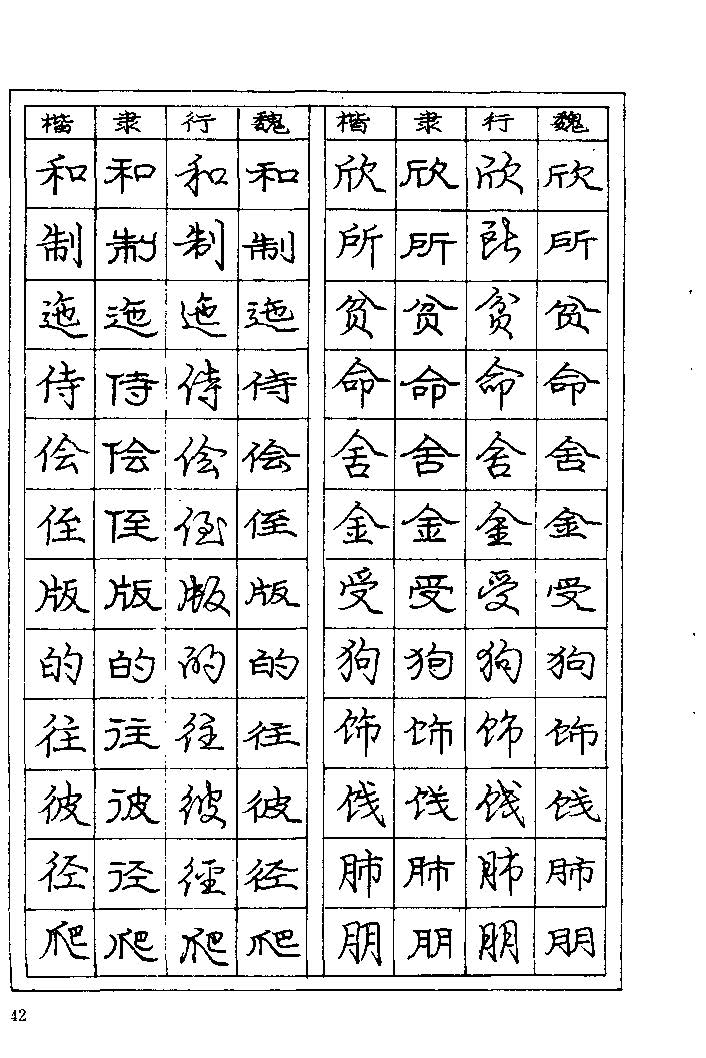 楷 隶 行 魏 楷 隶 行 魏
和 和 和 和 欣 欣 欣 欣
制 制 制 制 所 所 所 所
迤 迤 迤 迤 贫 贫 贫 贫
侍 侍 侍 侍 命 命 命 命
侩 侩 侩 侩 舍 舍 舍 舍
侄 侄 侄 侄 金 金 金 金
版 版 版 版 受 受 受 受
的 的 的 的 狗 狗 狗 狗
往 往 往 往 饰 饰 饰 饰
彼 彼 彼 彼 饯 饯 饯 饯
径 径 徑 径 肺 肺 肺 肺
爬 爬 爬 爬 朋 朋 朋 朋
42